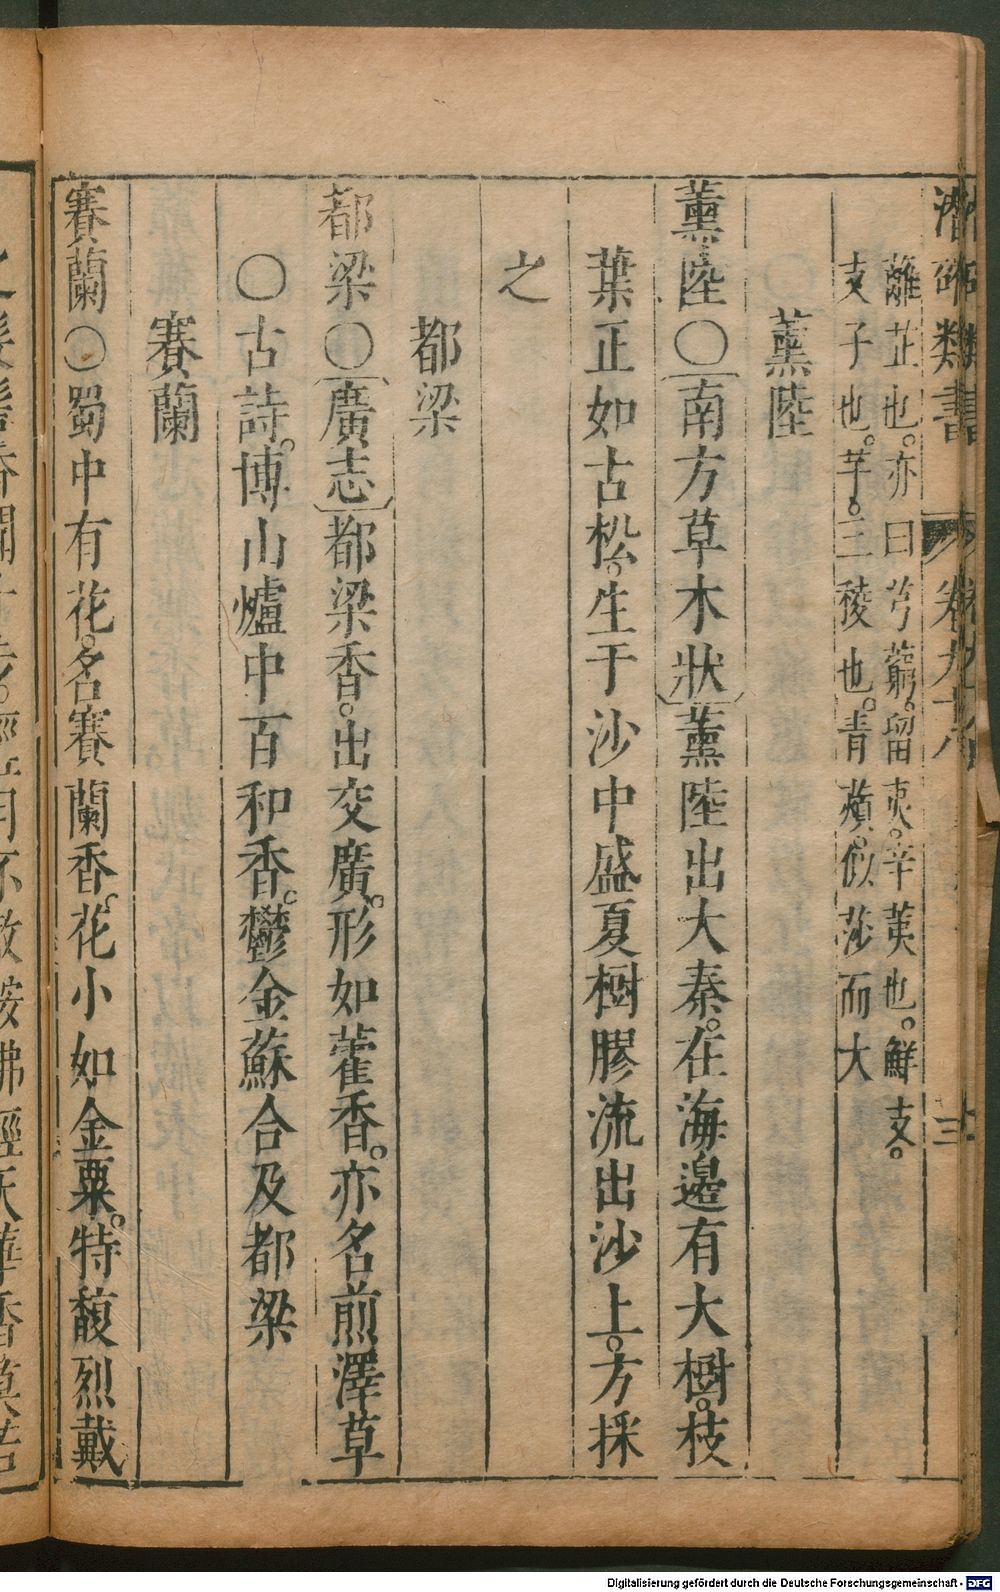 潛确類書 卷九十八 十三
蘺芷也亦曰芎藭留夷辛荑也鮮支
支子也芋三稜也青薠似莎而大
薰陸
薰陸〇南方草木狀薰陸出大秦在海邊有大樹枝
葉正如古松生于沙中盛夏樹膠流出沙上方採
之
都梁
都梁〇廣志都梁香出交廣形如藿香亦名煎澤草
〇古詩博山爐中百和香鬱金蘇合及都梁
賽蘭
賽蘭〇蜀中有花名賽蘭香花小如金粟特馥烈戴
Digitalisierung gefördert durch die Deutsche Forschungsgemeinschaft - DFG